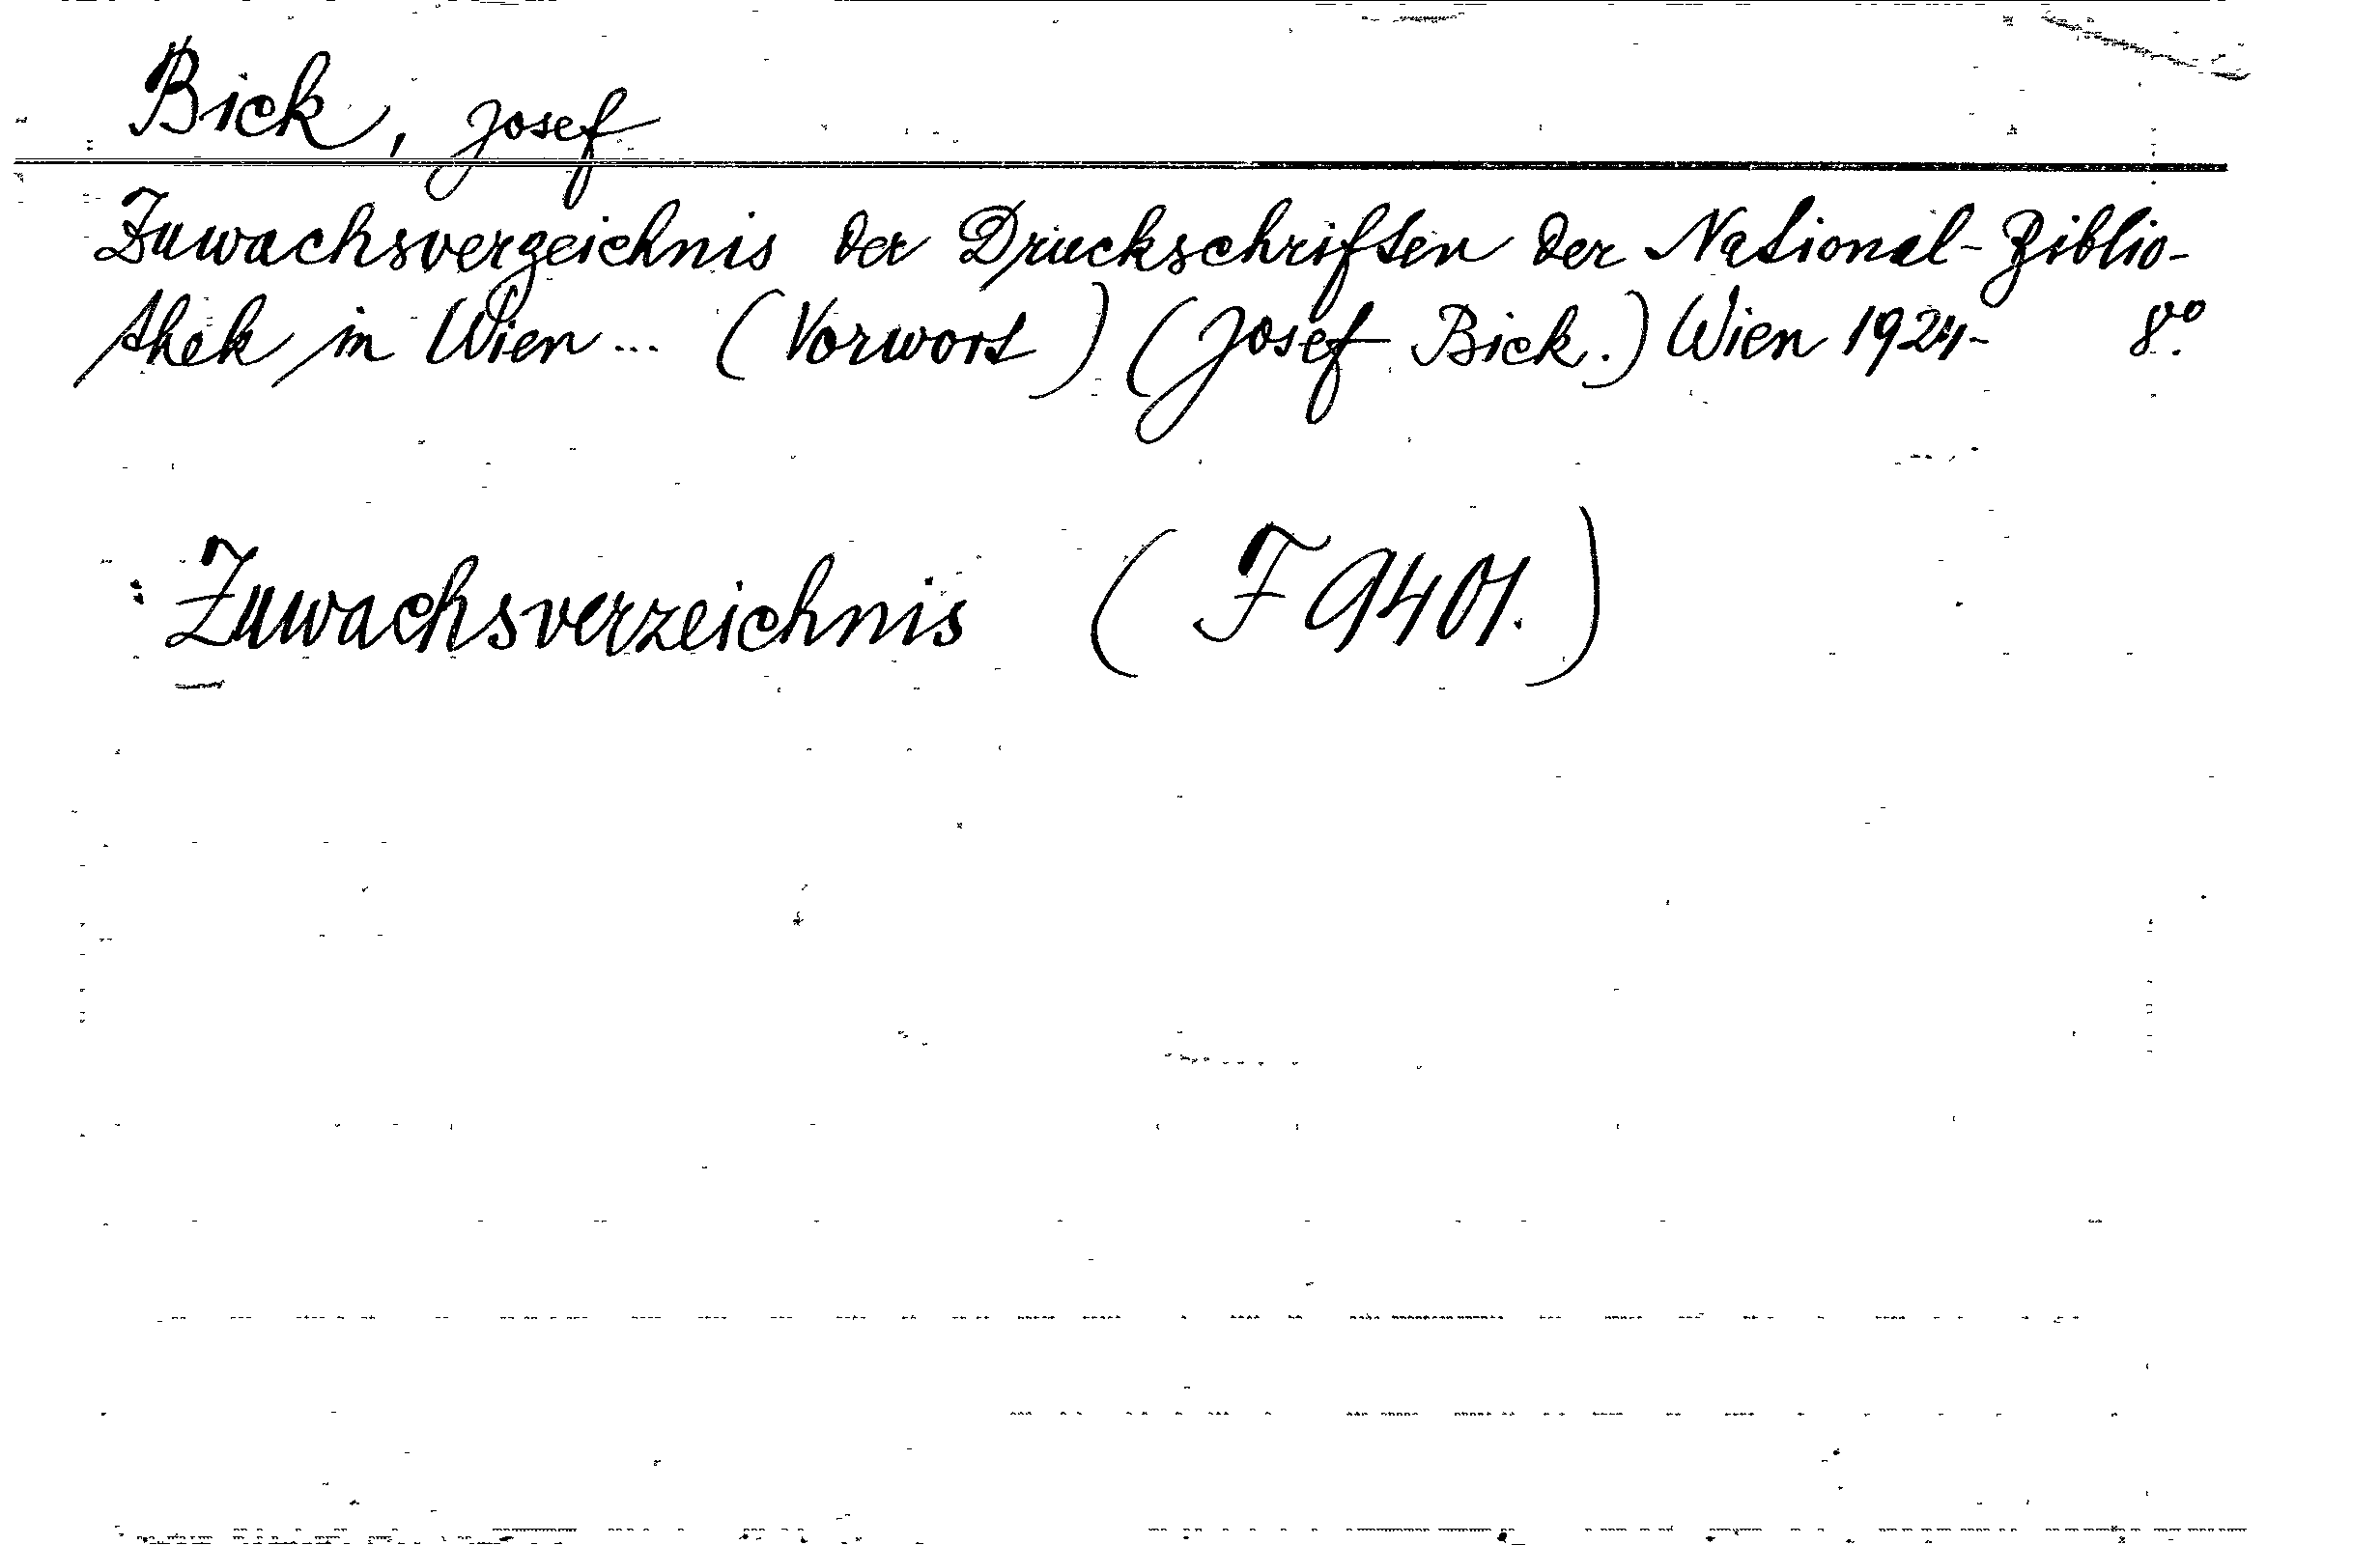 Bick, Josef
Zuwachsverzeichnis der Druckschriften der National-Biblio-
thek in Wien ... (Vorwort) (Josef Bick.) Wien 1924- 8º.
: Zuwachsverzeichnis (F 9401.)